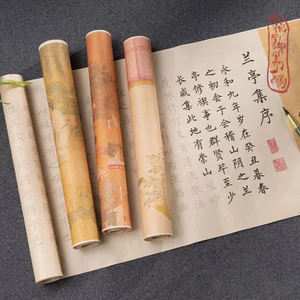 兰亭集序
永和九年岁在癸丑暮春
之初会于会稽山阴之兰
亭修禊事也群贤毕至少
长咸集此地有崇山